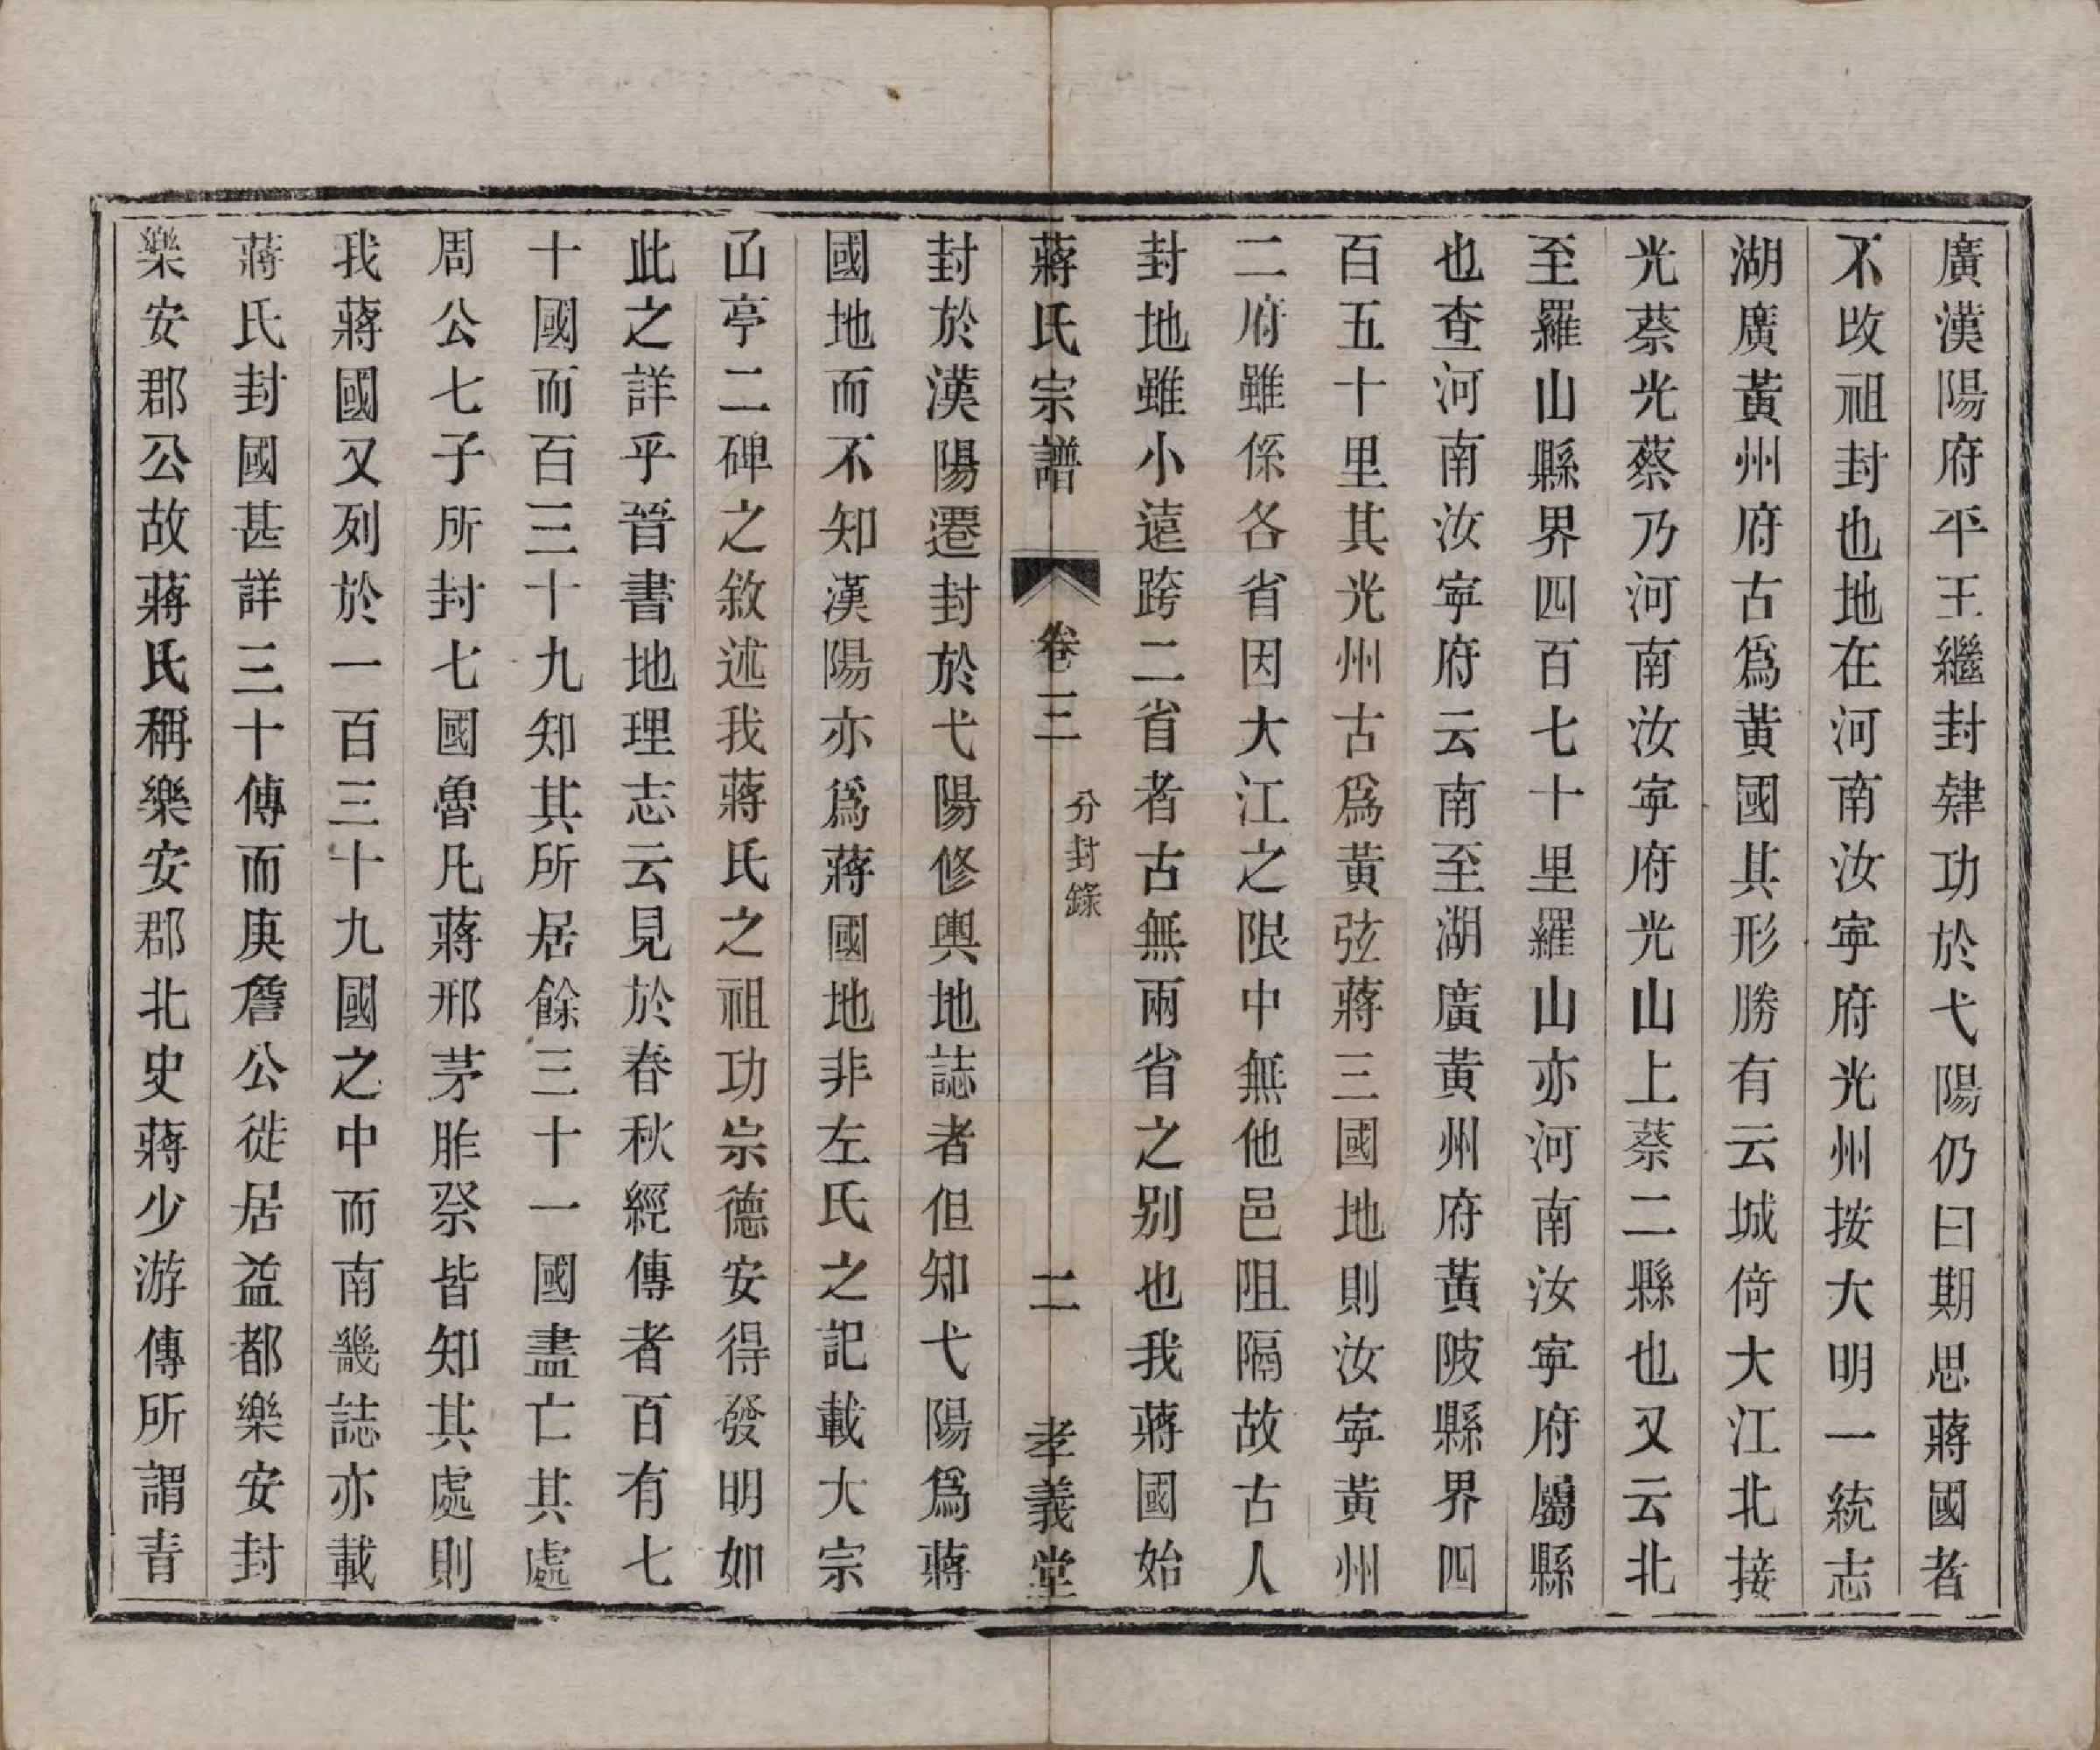 廣漢陽府平王繼封肄功於弋陽仍曰期思蔣國者
不改祖封也地在河南汝寧府光州按大明一統志
湖廣黃州府古爲黃國其形勝有云城倚大江北接
光蔡光蔡乃河南汝寧府光山上蔡二縣也又云北
至羅山縣界四百七十里羅山亦河南汝寧府屬縣
也查河南汝寧府云南至湖廣黃州府黃陂縣界四
百五十里其光州古爲黃弦蔣三國地則汝寧黃州
二府雖係各省因大江之限中無他邑阻隔故古人
封地雖小遠跨二省者古無兩省之別也我蔣國始
蔣氏宗譜 卷三 分封錄 二 孝義堂
封於漢陽遷封於弋陽修輿地誌者但知弋陽爲蔣
國地而不知漢陽亦爲蔣國地非左氏之記載大宗
亟亭二碑之敘述我蔣氏之祖功宗德安得發明如
此之詳乎晉書地理志云見於春秋經傳者百有七
十國而百三十九知其所居餘三十一國盡亡其處
周公七子所封七國魯凡蔣邢茅胙祭皆知其處則
我蔣國又列於一百三十九國之中而南畿誌亦載
蔣氏封國甚詳三十傳而庚詹公徙居益都樂安封
樂安郡公故蔣氏稱樂安郡北史蔣少游傳所謂青